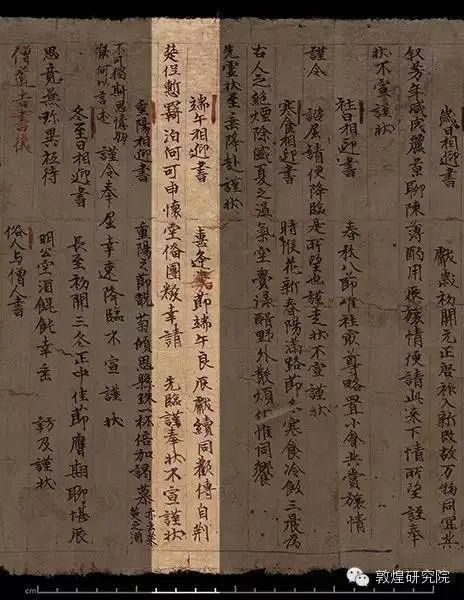 歲日相迎書 獻歲初開元正啓祚入新改故万物同宜共
叙芳年咸成麗景聊陳尊酌用展旅情便請此來下情所望謹奉
狀不宣謹狀
社日相迎書 春秋八節唯社最尊略置小會共賞旅情
謹令 諮屈請便降臨是所望也謹走狀不宣謹狀
寒食相迎書 時候花新春陽滿路節名寒食冷飲三晨為
古人之絶煙除盛夏之温氣空賫渌醑野外散煩伏惟同饗
先靈狀至垂降赴謹狀
端午相迎書 喜逢嘉節端午良辰獻續同歡傳自荆
楚但慙羇泊何可申懷空俻團粽幸請 先臨謹奉狀不宣謹狀
重陽相迎書 重陽之節翫菊傾思一杯倍加謁慕
謹令奉屈幸速降臨不宣謹狀
冬至日相迎書 長至初開三冬正中佳節應期聊堪展
思竟無珎異祇待 明公空酒餛飩幸垂 訪及謹狀
僧道書書儀 俗人与僧人書
cm
敦煌研究院